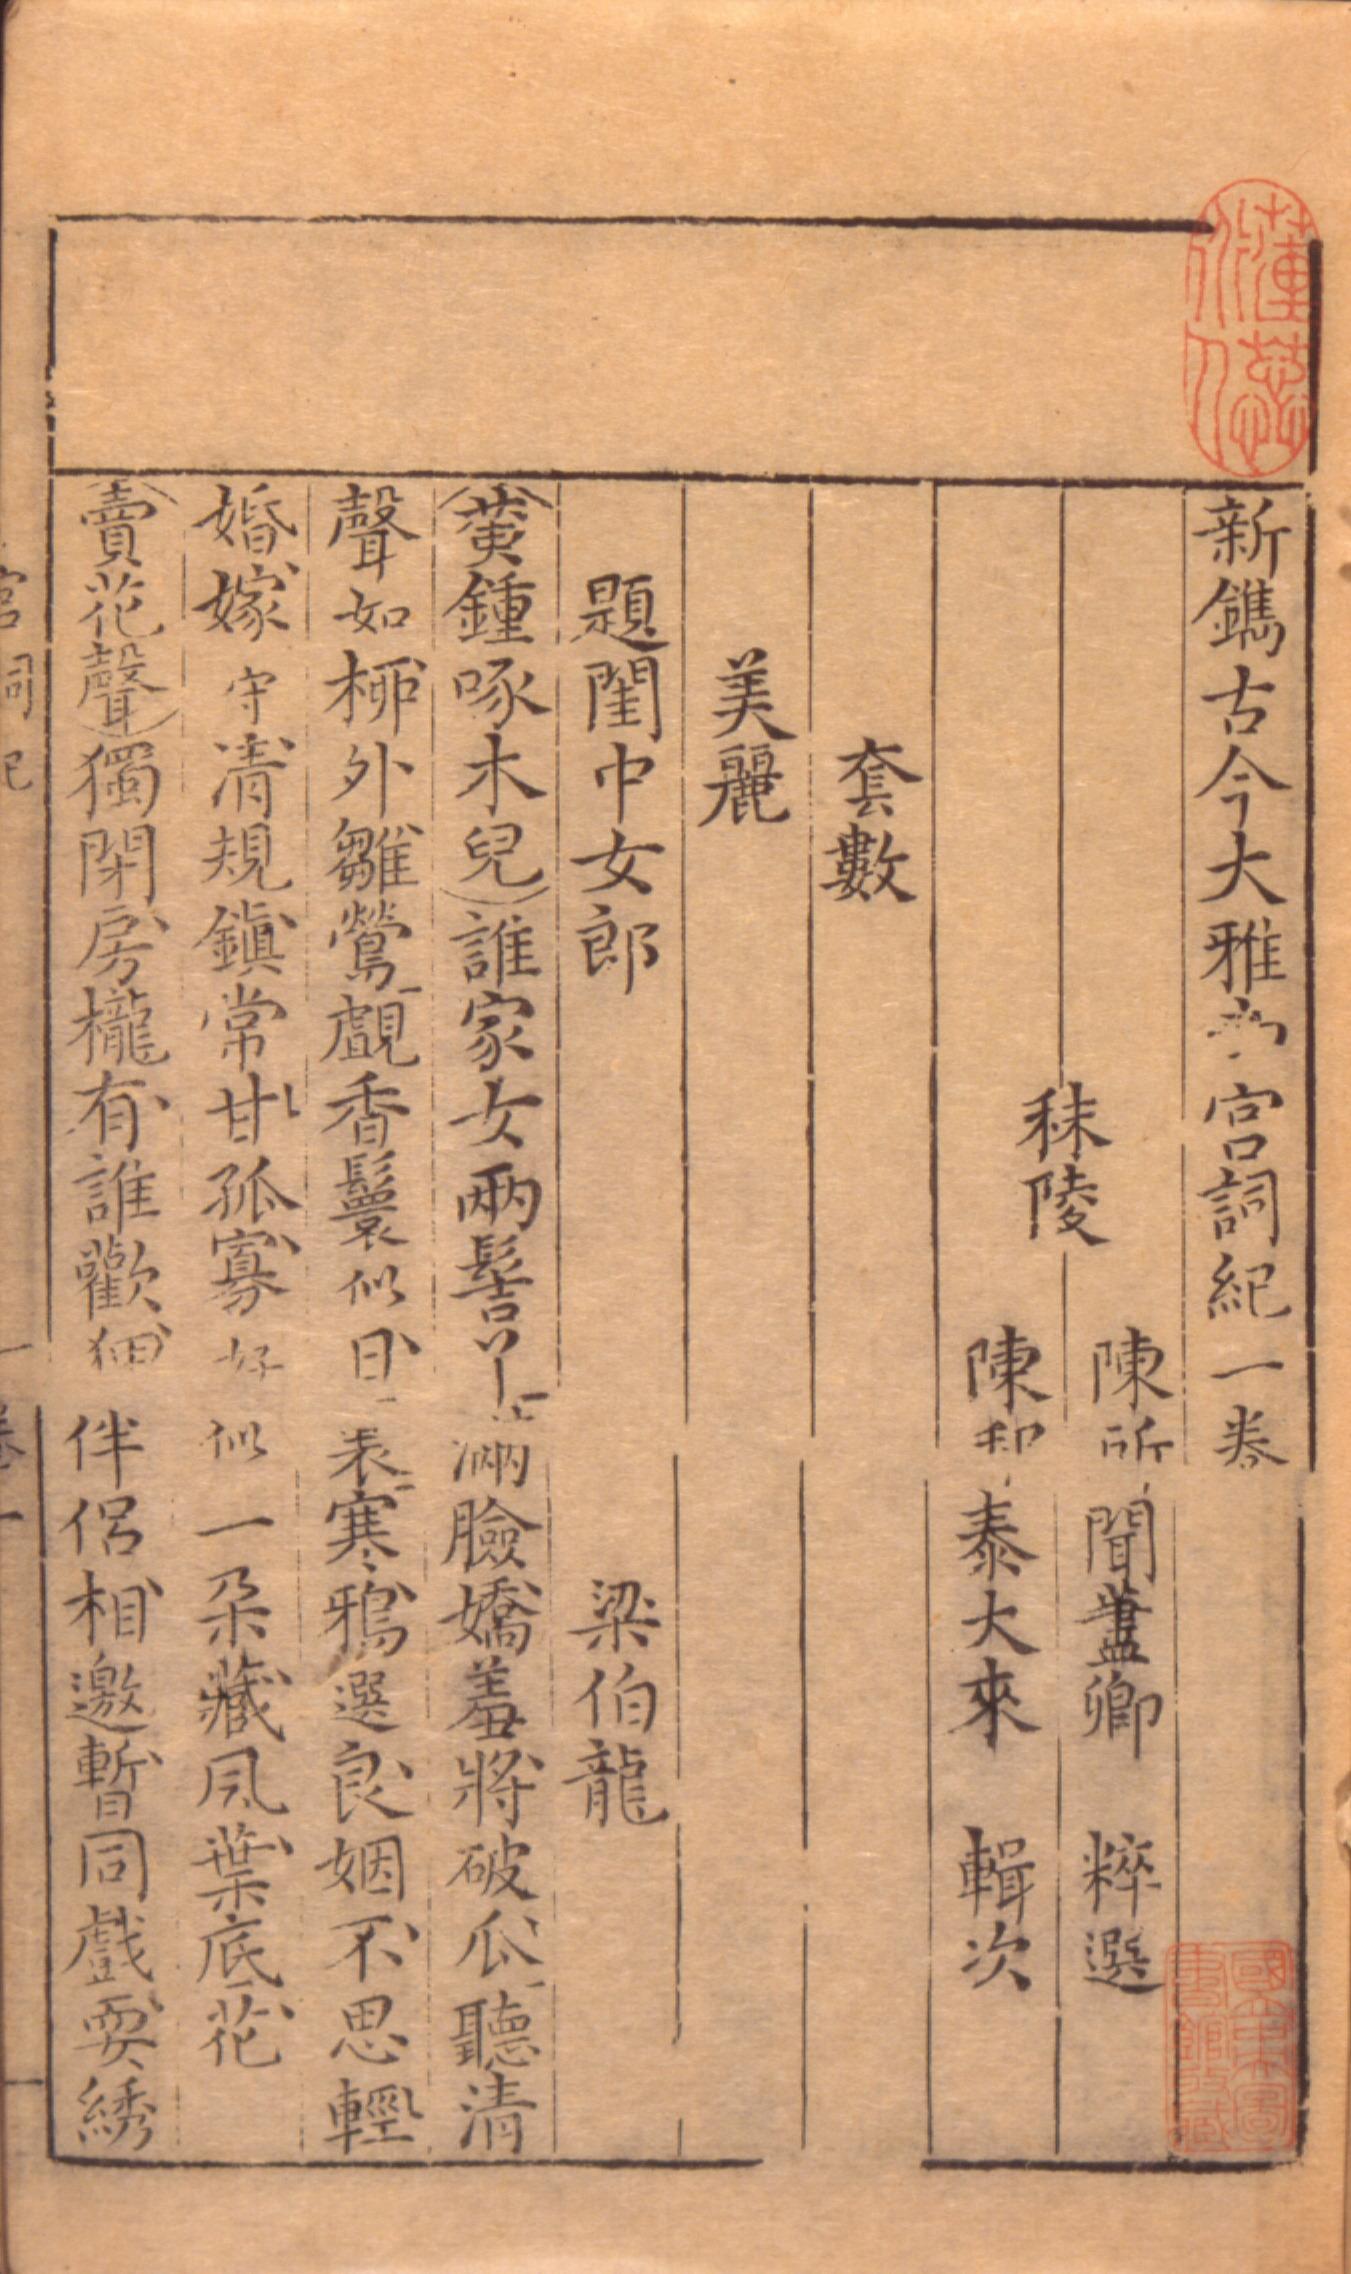 新鐫古今大雅宮詞紀一卷
秣陵
陳所聞藎卿 粹選
陳和泰大來 輯次
套數
美麗
題閨中女郎 梁伯龍
黃鍾啄木兒 誰家女兩髻丫滿臉嬌羞將破瓜聽清
聲如柳外雛鶯覷香鬟似日表寒鴉選良姻不思輕
婚嫁守清規鎮常甘孤寡好似一朶藏風葉底花
賣花聲 獨閉房櫳有誰歡狎伴侶相邀暫同戲耍綉
宮詞紀 卷一